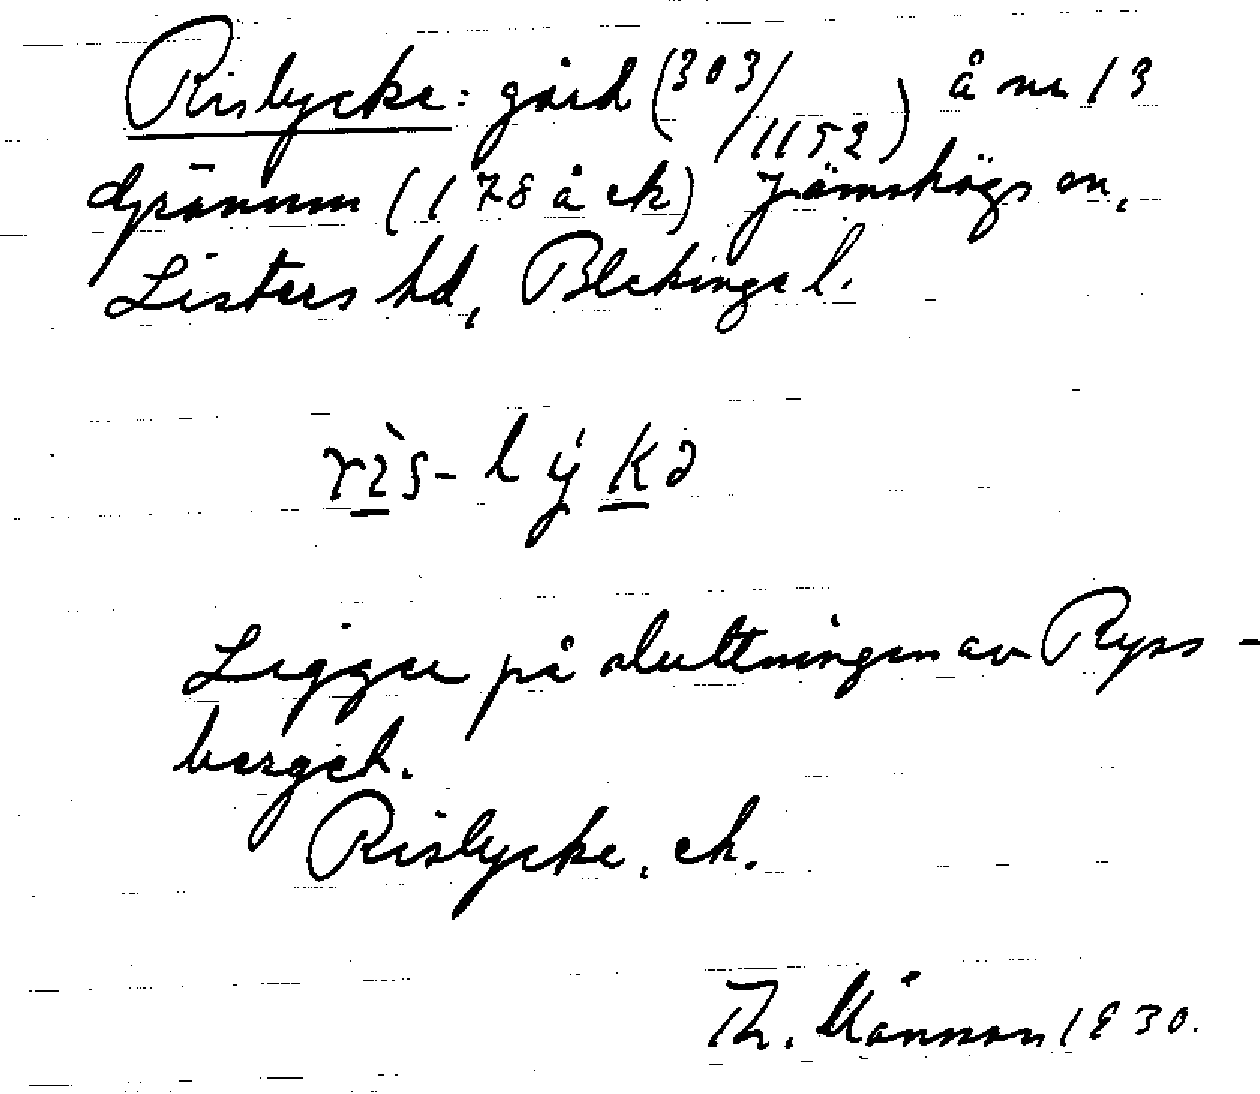 Rislycke: gård (303/1152) å nr 13
Grånum (178 å ek) Jämshögs sn,
Listers hd, Blekinge l.
rìs-lýkə
Ligger på sluttningen av Ryss-
berget.
Rislycke, ek.
Th. Månsson 1930.